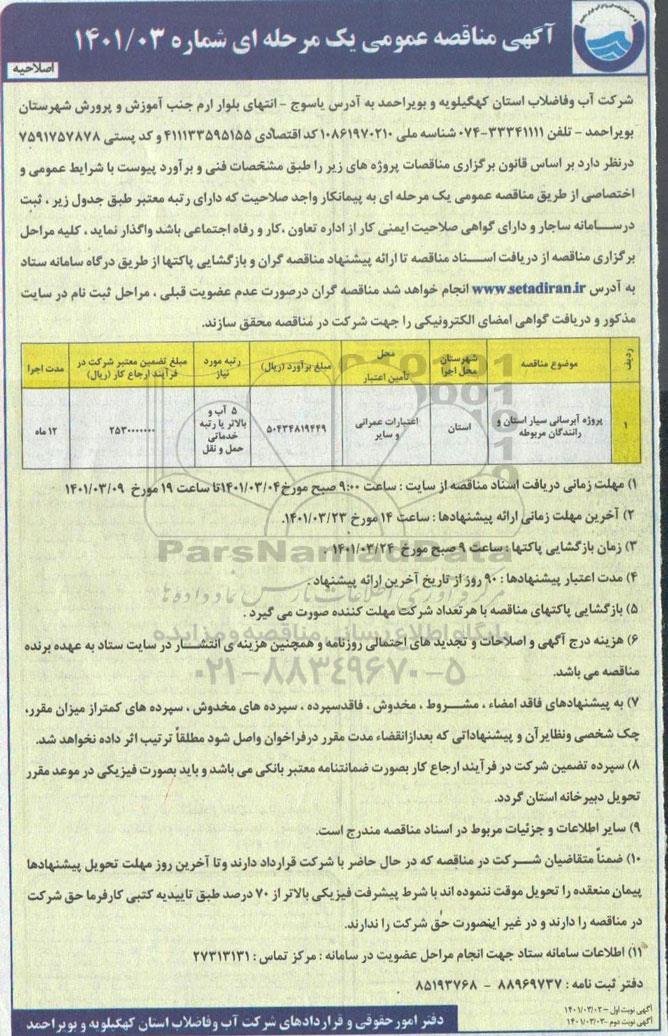 آگهی مناقصه عمومی یک مرحله ای شماره ۱۴۰۱/۰۳
اصلاحیه
شرکت آب وفاضلاب استان کهگیلویه و بویراحمد به آدرس یاسوج - انتهای بلوار ارم جنب آموزش و پرورش شهرستان
بویراحمد - تلفن ۳۳۳۴۱۱۱۱-۰۷۴ شناسه ملی ۱۰۸۶۱۹۷۰۲۱۰ کد اقتصادی ۴۱۱۱۳۳۵۹۵۱۵۵ و کد پستی ۷۵۹۱۷۵۷۸۷۸
درنظر دارد بر اساس قانون برگزاری مناقصات پروژه های زیر را طبق مشخصات فنی و برآورد پیوست با شرایط عمومی و
اختصاصی از طریق مناقصه عمومی یک مرحله ای به پیمانکار واجد صلاحیت که دارای رتبه معتبر طبق جدول زیر ، ثبت
درسـامانه ساجار و دارای گواهی صلاحیت ایمنی کار از اداره تعاون ،کار و رفاه اجتماعی باشد واگذار نماید ، کلیه مراحل
برگزاری مناقصه از دریافت اسـناد مناقصه تا ارائه پیشنهاد مناقصه گران و بازگشایی پاکتها از طریق درگاه سامانه ستاد
به آدرس www.setadiran.ir انجام خواهد شد مناقصه گران درصورت عدم عضویت قبلی ، مراحل ثبت نام در سایت
مذکور و دریافت گواهی امضای الکترونیکی را جهت شرکت در مناقصه محقق سازند.
ردیف
موضوع مناقصه
شهرستان محل اجرا
محل تأمین اعتبار
مبلغ برآورد (ریال)
رتبه مورد نیاز
مبلغ تضمین معتبر شرکت در فرآیند ارجاع کار (ریال)
مدت اجرا
۱
پروژه آبرسانی سیار استان و رانندگان مربوطه
استان
اعتبارات عمرانی و سایر
۵۰۴۳۴۸۱۹۴۴۹
۵ آب و بالاتر یا رتبه خدماتی حمل و نقل
۲۵۳۰۰۰۰۰۰۰
۱۲ ماه
۱) مهلت زمانی دریافت اسناد مناقصه از سایت : ساعت ۹:۰۰ صبح مورخ ۱۴۰۱/۰۳/۰۴تا ساعت ۱۹ مورخ ۱۴۰۱/۰۳/۰۹
۲) آخرین مهلت زمانی ارائه پیشنهادها : ساعت ۱۴ مورخ ۱۴۰۱/۰۳/۲۳.
۳) زمان بازگشایی پاکتها : ساعت ۹ صبح مورخ ۱۴۰۱/۰۳/۲۴ .
۴) مدت اعتبار پیشنهادها : ۹۰ روز از تاریخ آخرین ارائه پیشنهاد .
۵) بازگشایی پاکتهای مناقصه با هر تعداد شرکت مهلت کننده صورت می گیرد .
۶) هزینه درج آگهی و اصلاحات و تجدید های احتمالی روزنامه و همچنین هزینه ی انتشـار در سایت ستاد به عهده برنده
مناقصه می باشد.
۷) به پیشنهادهای فاقد امضاء ، مشـروط ، مخدوش ، فاقدسپرده ، سپرده های مخدوش ، سپرده های کمتراز میزان مقرر،
چک شخصی ونظایرآن و پیشنهاداتی که بعدازانقضاء مدت مقرر درفراخوان واصل شود مطلقاً ترتیب اثر داده نخواهد شد.
۸) سپرده تضمین شرکت در فرآیند ارجاع کار بصورت ضمانتنامه معتبر بانکی می باشد و باید بصورت فیزیکی در موعد مقرر
تحویل دبیرخانه استان گردد.
۹) سایر اطلاعات و جزئیات مربوط در اسناد مناقصه مندرج است.
۱۰) ضمناً متقاضیان شـرکت در مناقصه که در حال حاضر با شرکت قرارداد دارند وتا آخرین روز مهلت تحویل پیشنهادها
پیمان منعقده را تحویل موقت ننموده اند با شرط پیشرفت فیزیکی بالاتر از ۷۰ درصد طبق تاییدیه کتبی کارفرما حق شرکت
در مناقصه را دارند و در غیر اینصورت حق شرکت را ندارند.
۱۱) اطلاعات سامانه ستاد جهت انجام مراحل عضویت در سامانه : مرکز تماس : ۲۷۳۱۳۱۳۱
دفتر ثبت نامه : ۸۸۹۶۹۷۳۷ - ۸۵۱۹۳۷۶۸
آگهی نوبت اول - ۱۴۰۱/۰۳/۰۲
آگهی نوبت دوم - ۱۴۰۱/۰۳/۰۳
دفتر امور حقوقی و قراردادهای شرکت آب وفاضلاب استان کهگیلویه و بویراحمد
ParsNamadData
مرکز فرآوری اطلاعات پارس نماد داده ها
پایگاه اطلاع رسانی مناقصه و مزایده
۰۲۱-۸۸۳۴۹۶۷۰-۵